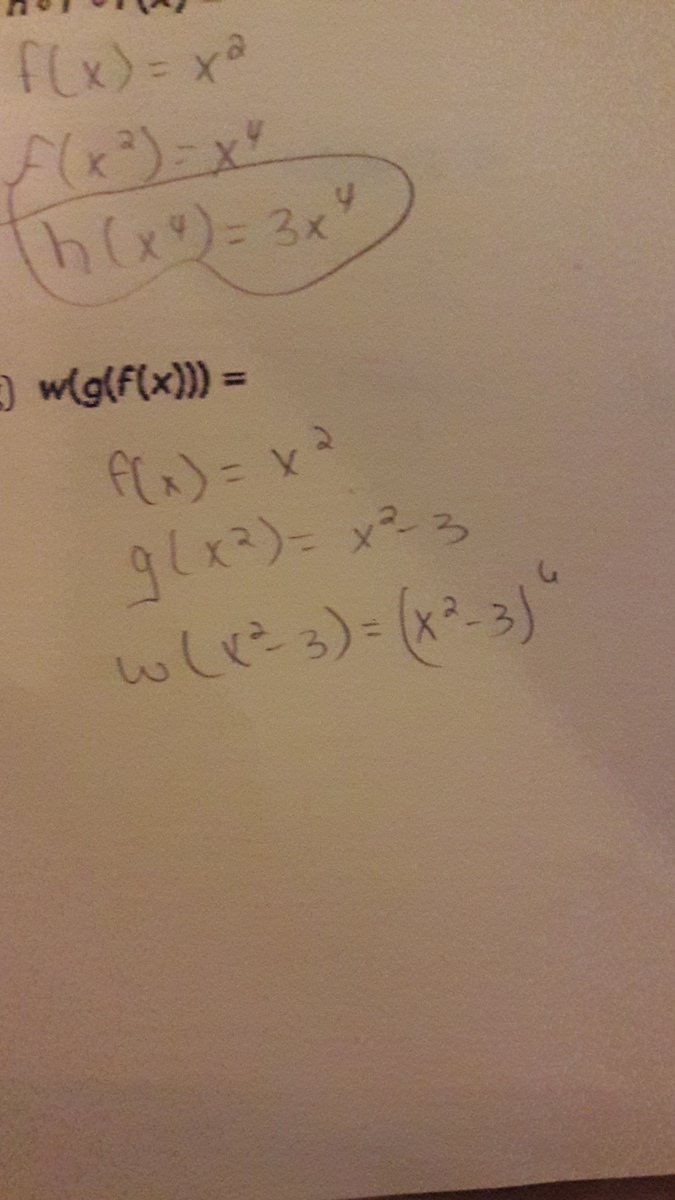 f(x) = x²
f(x²) = x⁴
h(x⁴) = 3x⁴
w(g(f(x))) =
f(x) = x²
g(x²) = x²-3
w(x²-3) = (x²-3)